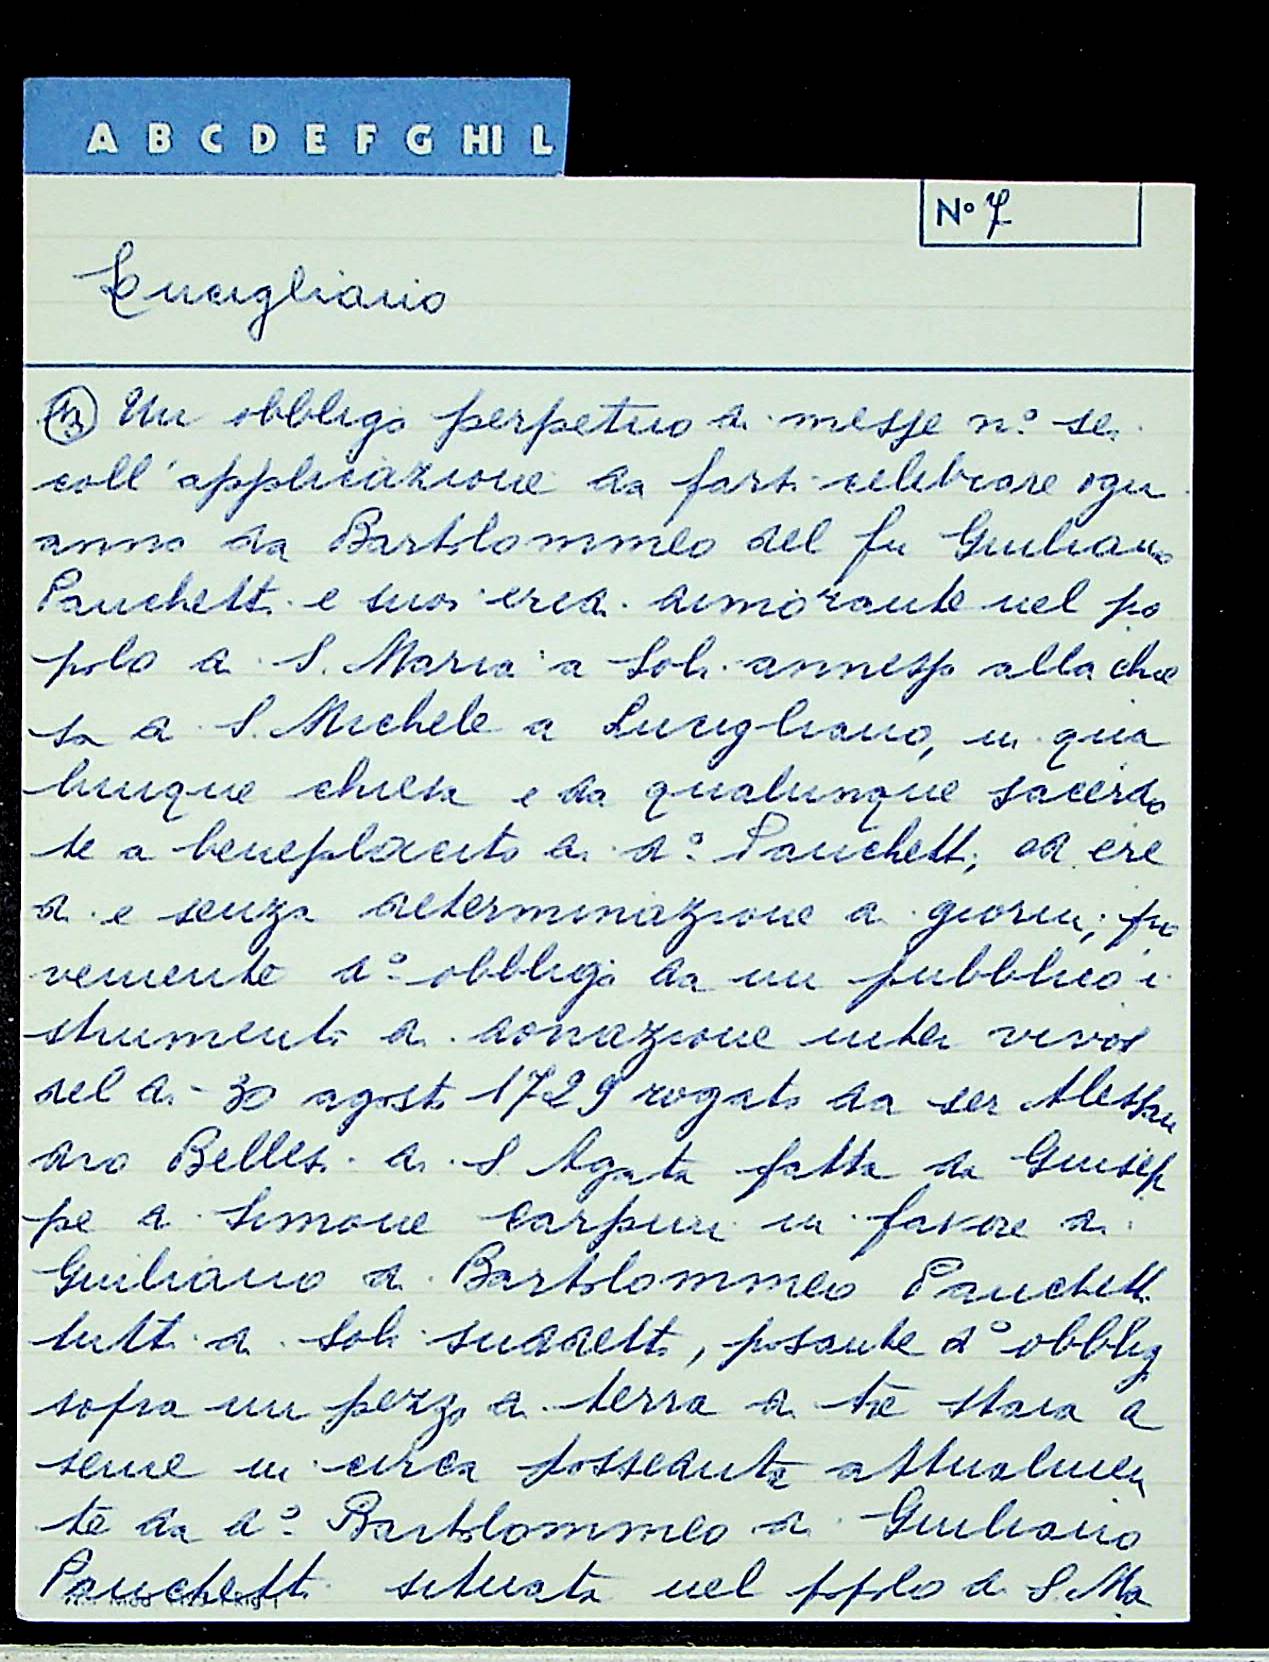 A B C D E F G HI L
N° 7
Lucigliano
Un obbligo perpetuo di messe n.° sei
coll'applicazione da farsi celebrare ogni
anno da Bartolommeo del fu Giuliano
Panchetti e suoi eredi dimorante nel po
polo di S. Maria a Soli annesso alla chie
sa di S. Michele a Lucigliano, in qua
lunque chiesa e da qualunque sacerdo
te a beneplacito di d.° Panchetti, ed ere
di e senza determinazione di giorni; pro
veniente d.° obbligo da un pubblico i
strumento di donazione inter vivos
del dì 30 agosto 1729 rogato da ser Alessan
dro Bellesi di S. Agata fatta da Giusep
pe di Simone Carpini in favore di
Giuliano di Bartolommeo Panchetti
tutti di Soli suddetto, posante d.° obbligo
sopra un pezzo di terra di tre staia a
seme in circa posseduta attualmen
te da d.° Bartolommeo di Giuliano
Panchetti situata nel popolo di S. Ma